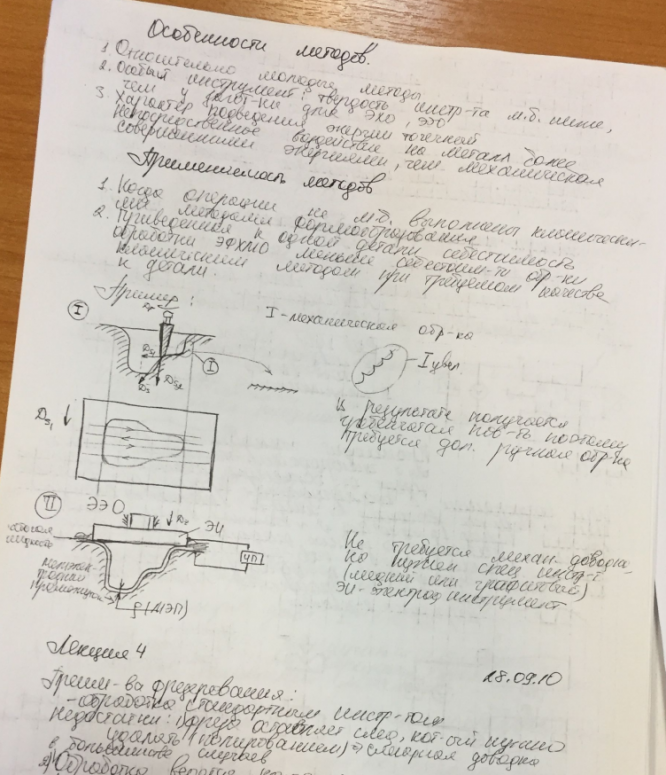 Особенности методов.
1. Относительно молодые методы
2. Особый инструмент, твердость инстр-та м.б. ниже,
чем у загот-ки для ЭХО, ЭЭО
3. Характер подведения энергии точечный
непосредственное воздействие на металл более
совершенными энергиями, чем механическая
Применяемость методов
1. Когда операции не м.б. выполнены классически-
ми методами формообразования
2. Приведенная к одной детали себестоимость
обработки ЭФХМО меньше себестоим-ти обр-ки
классическим методом при требуемом качестве
к детали.
Пример:
I
I - механическая обр-ка
I увел.
I
В результате получается
гребенчатая пов-ть поэтому
требуется доп. ручная обр-ка
Ds1
II
ЭЭО
ЭИ
рабочая
жидкость
ЧП
межэлек-
тродный
промежуток
Не требуется механ. доводка,
но нужен спец инст-т
(медный или графитовый)
ЭИ - электрод инструмент
Лекция 4
28.09.10
Преим-ва фрезерования:
- обработка стандартным инстр-том
недостатки: 1) фреза оставляет след, кот-ый нужно
удалять (полированием) ⇒ слесарная доводка
в большинстве случаев
2) Обработка